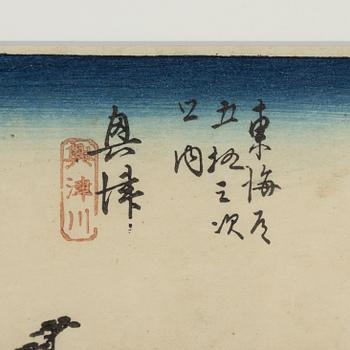 東海道
五拾三次
之内
奥津
興津川